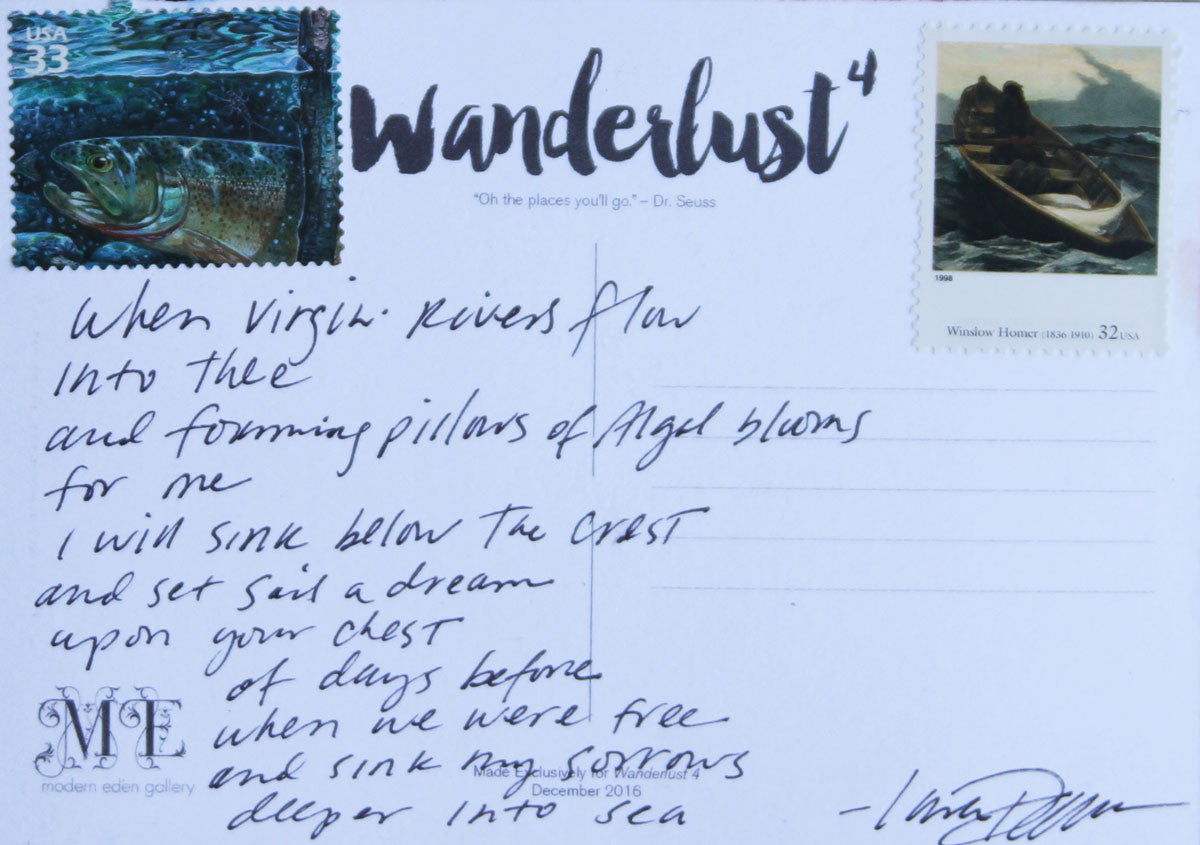 USA
33
Wanderlust 4
"Oh the places you'll go." – Dr. Seuss
1998
Winslow Homer (1836-1910) 32 USA
When Virgin Rivers flow
into thee
and foaming pillows of Algal blooms
for me
I will sink below the crest
and set sail a dream
upon your chest
of days before
when we were free
and sink my sorrows
deeper into sea
ME
modern eden gallery
Made Exclusively for Wanderlust 4
December 2016